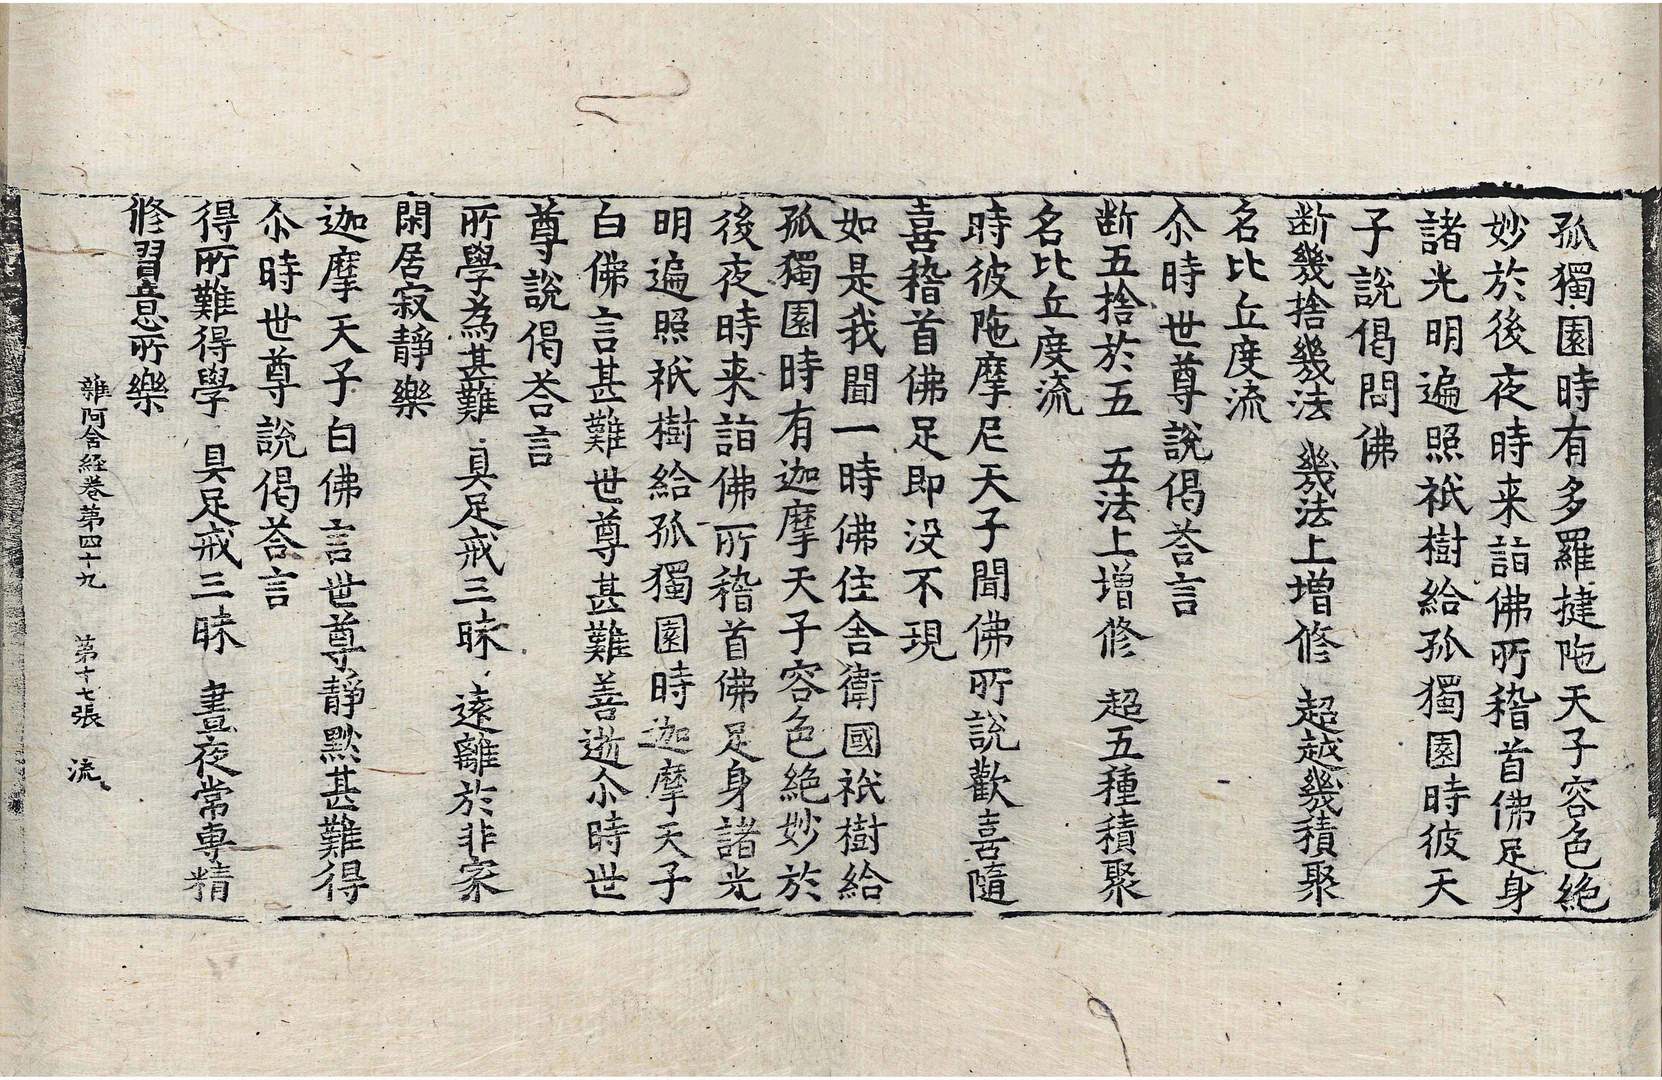 孤獨園時有多羅揵陁天子容色絶
妙於後夜時来詣佛所稽首佛足身
諸光明遍照祇樹給孤獨園時彼天
子說偈問佛
断幾捨幾法 幾法上增修 超越幾積聚
名比丘度流
尒時世尊說偈荅言
断五捨於五 五法上增修 超五種積聚
名比丘度流
時彼陁摩尼天子聞佛所說歡喜隨
喜稽首佛足即没不現
如是我聞一時佛住舍衛國祇樹給
孤獨園時有迦摩天子容色絶妙於
後夜時来詣佛所稽首佛足身諸光
明遍照祇樹給孤獨園時迦摩天子
白佛言甚難世尊甚難善逝尒時世
尊說偈荅言
所學為甚難 具足戒三昧 遠離於非家
閑居寂靜樂
迦摩天子白佛言世尊靜默甚難得
尒時世尊說偈荅言
得所難得學 具足戒三昧 晝夜常專精
脩習意所樂
雜阿含経卷第四十九 第十七張 流